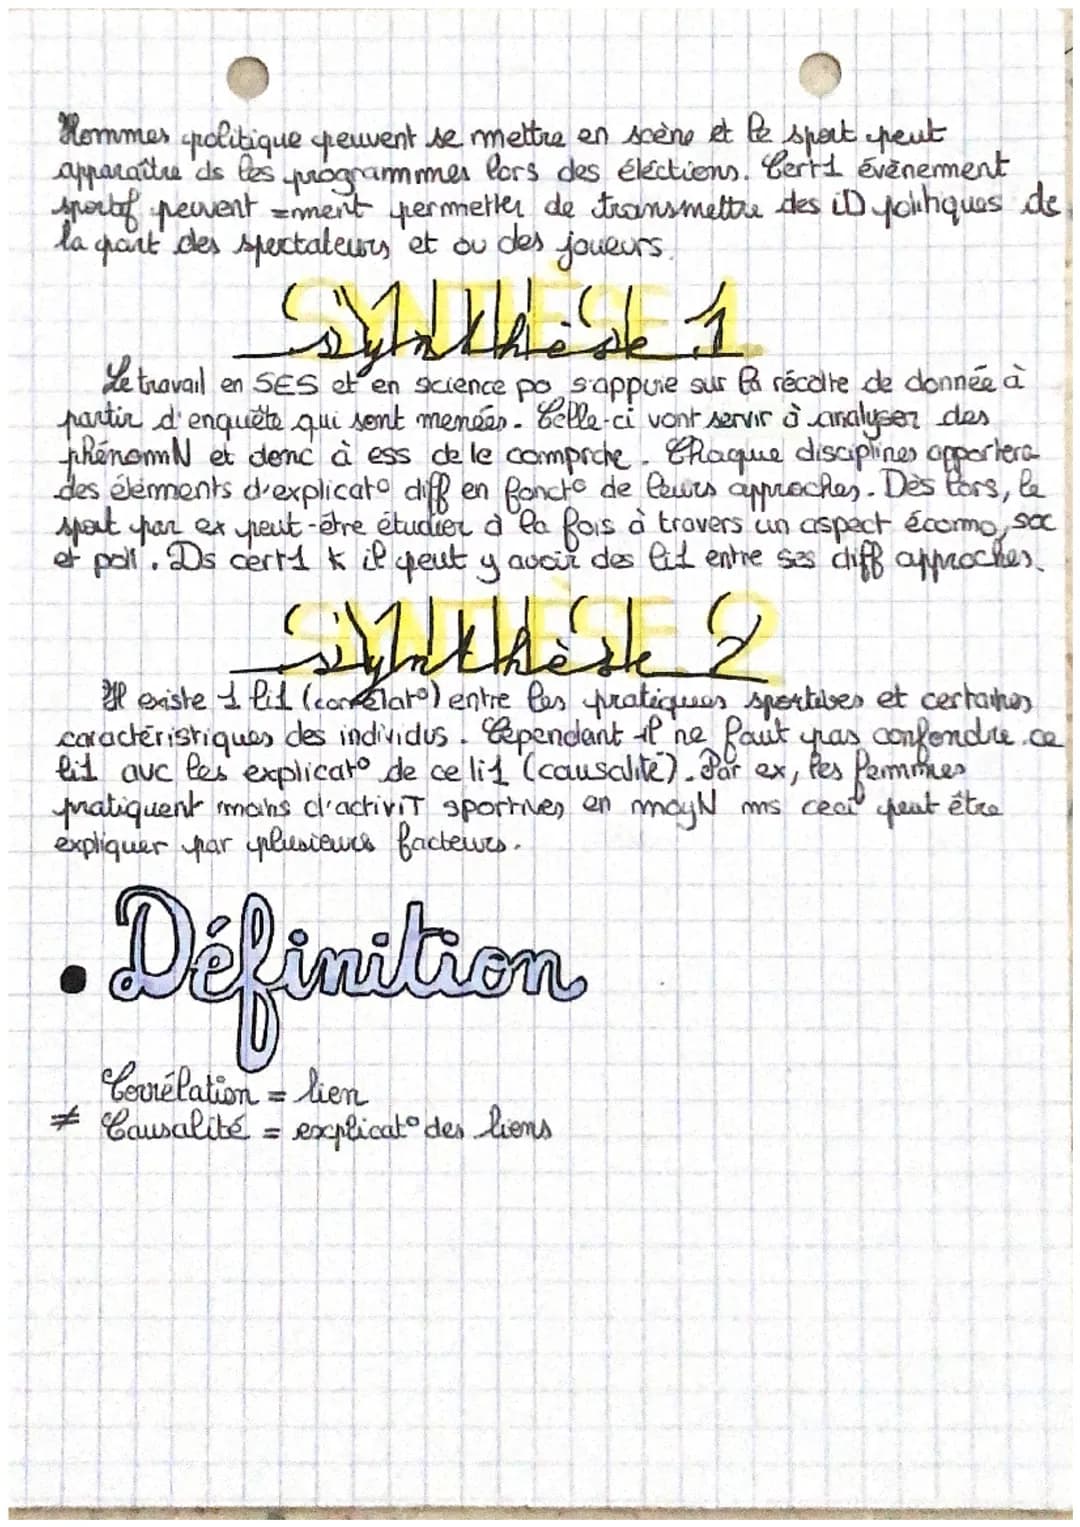 Hommes politique peuvent se mettre en scène et le sport peut
apparaître ds les programmes lors des éléctions. Cert1 évènement
sportif peuvent =ment permetter de transmettre des iD politiques de
la part des spectateurs et ou des joueurs.
SYNTHÈSE 1
Synthèse 1
Le travail en SES et en science po s'appuie sur la récolte de donnée à
partir d'enquête qui sont menées. Celle-ci vont servir à analyser des
phénomN et donc à ess de le comprdre. Chaque disciplines apportera
des éléments d'explicat° diff en fonct° de leurs approches. Dès lors, le
sport par ex peut-être étudier à la fois à travers un aspect écormo, soc
et poli. Ds cert1 k il peut y avoir des li1 entre ses diff approches.
SYNTHÈSE 2
Synthèse 2
Il existe 1 li1 (corrélat°) entre les pratiques sportives et certaines
caractéristiques des individus. Cependant il ne faut pas confondre ce
li1 avc les explicat° de ce li1 (causalité). Par ex, les femmes
pratiquent moins d'activiT sportives en moyN ms ceci peut être
expliquer par plusieurs facteurs.
• Définition
Corrélation = lien
≠ Causalité = explicat° des liens